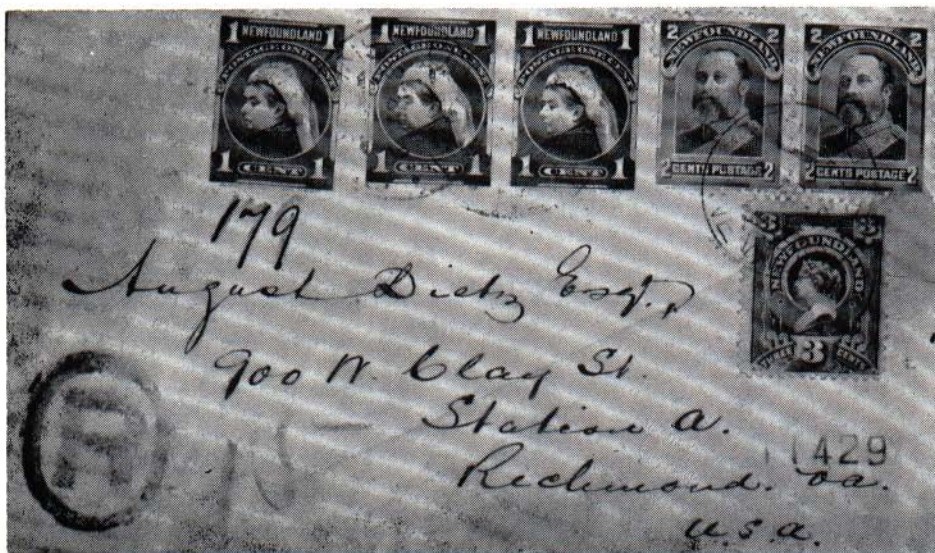 1 NEWFOUNDLAND 1
POSTAGE ONE CENT
1 CENT 1
1 NEWFOUNDLAND 1
POSTAGE ONE CENT
1 CENT 1
1 NEWFOUNDLAND 1
POSTAGE ONE CENT
1 CENT 1
2 NEWFOUNDLAND 2
2 CENTS POSTAGE 2
2 NEWFOUNDLAND 2
2 CENTS POSTAGE 2
3 3
NEWFOUNDLAND
THREE 3 CENTS
179
August Dietz Esqr.,
900 W. Clay St.
Station a.
Richmond. Va.
U.S.A.
R
11429